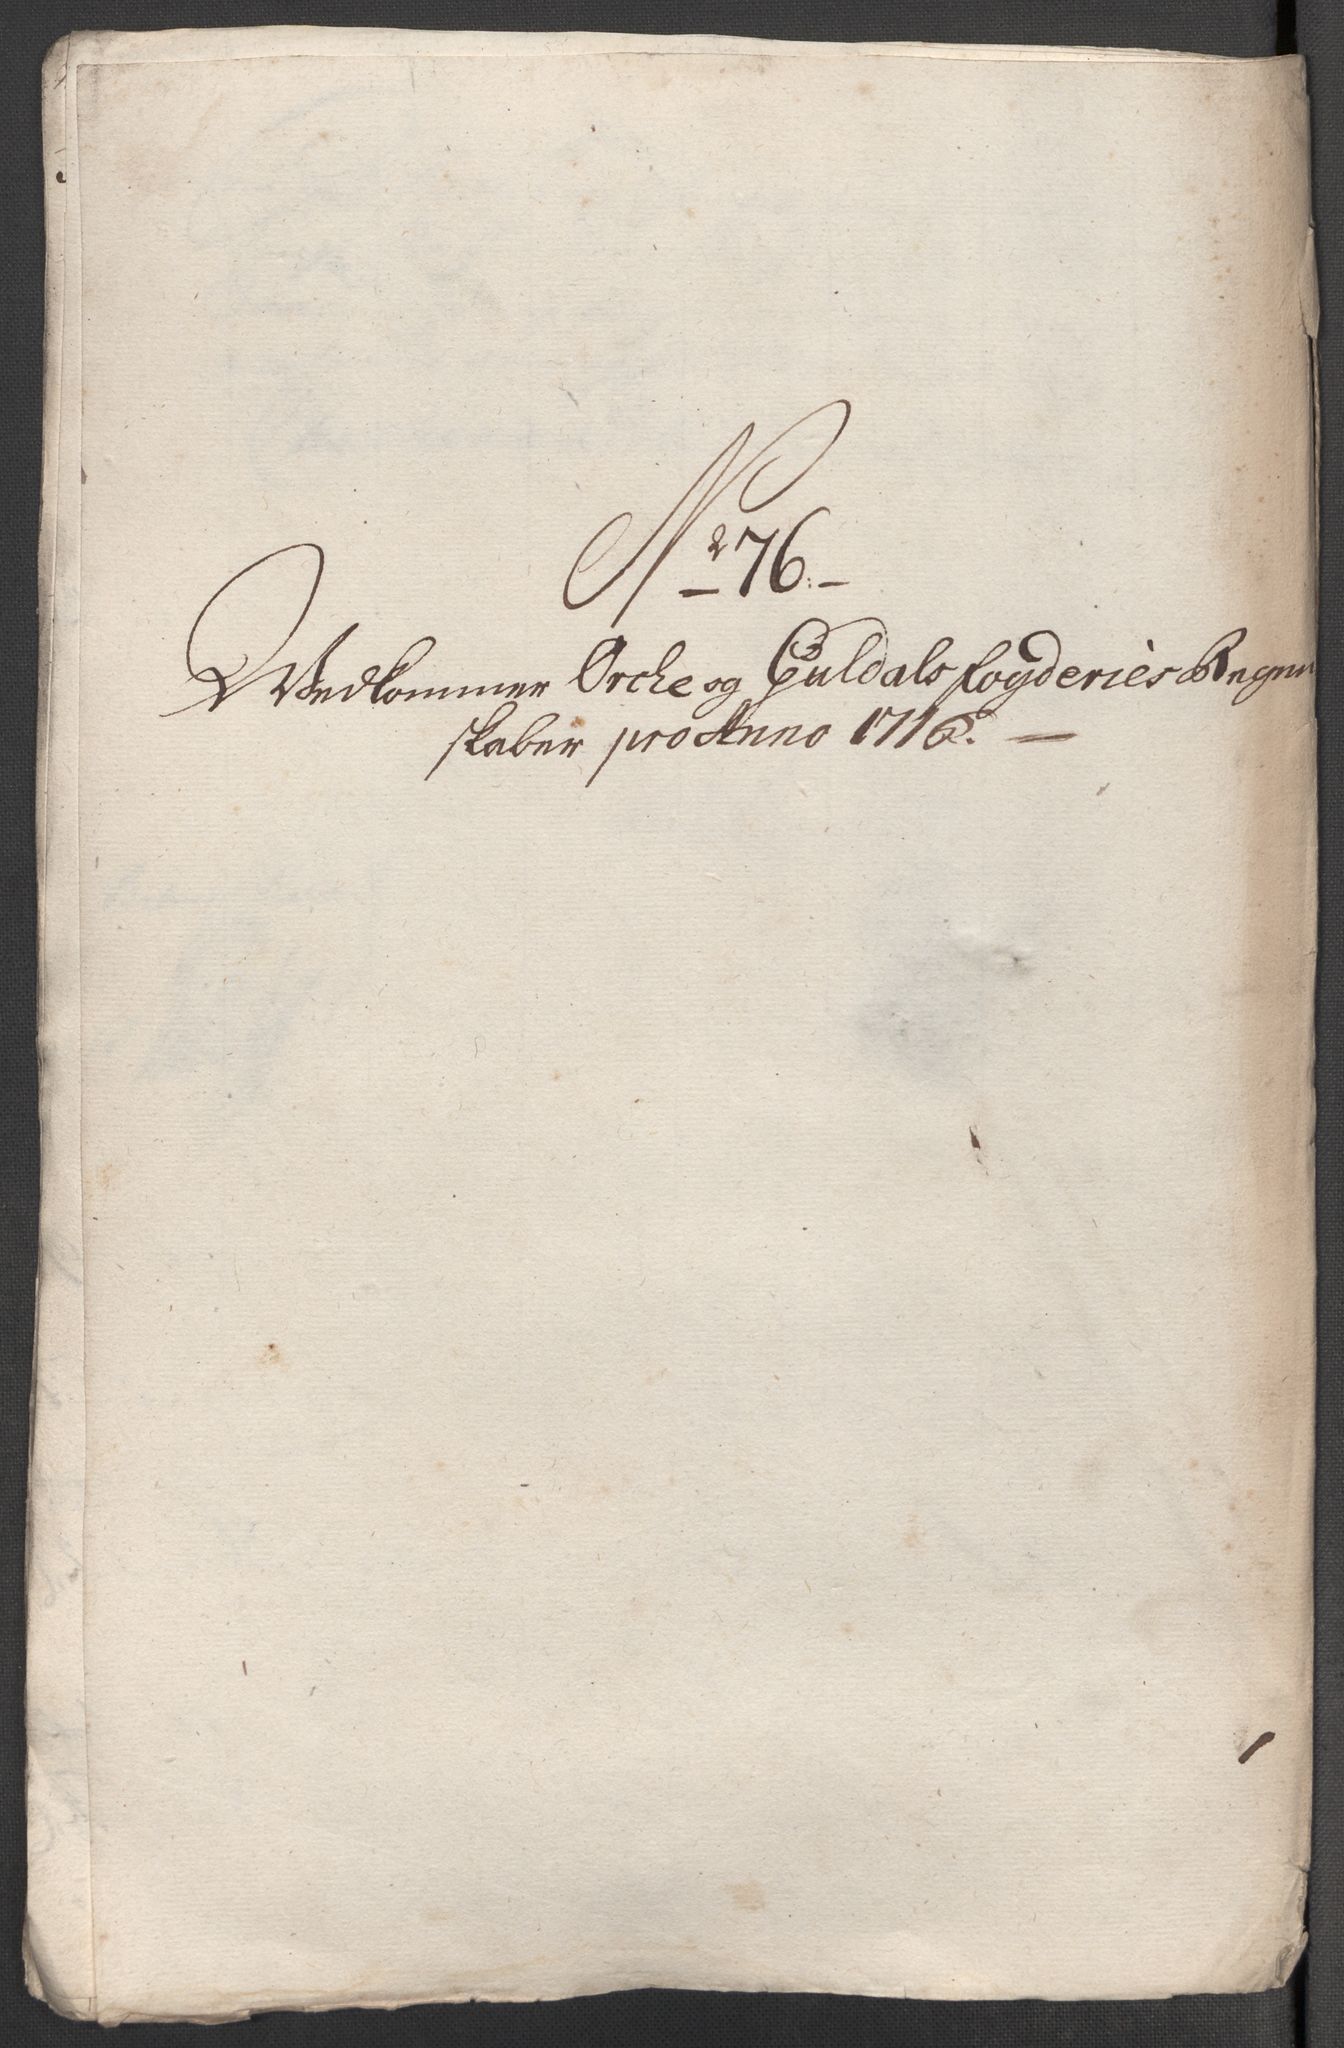 No 76.
Vedkommer Orche og Guldals fogderies Regen
skaber pro Anno 1716.